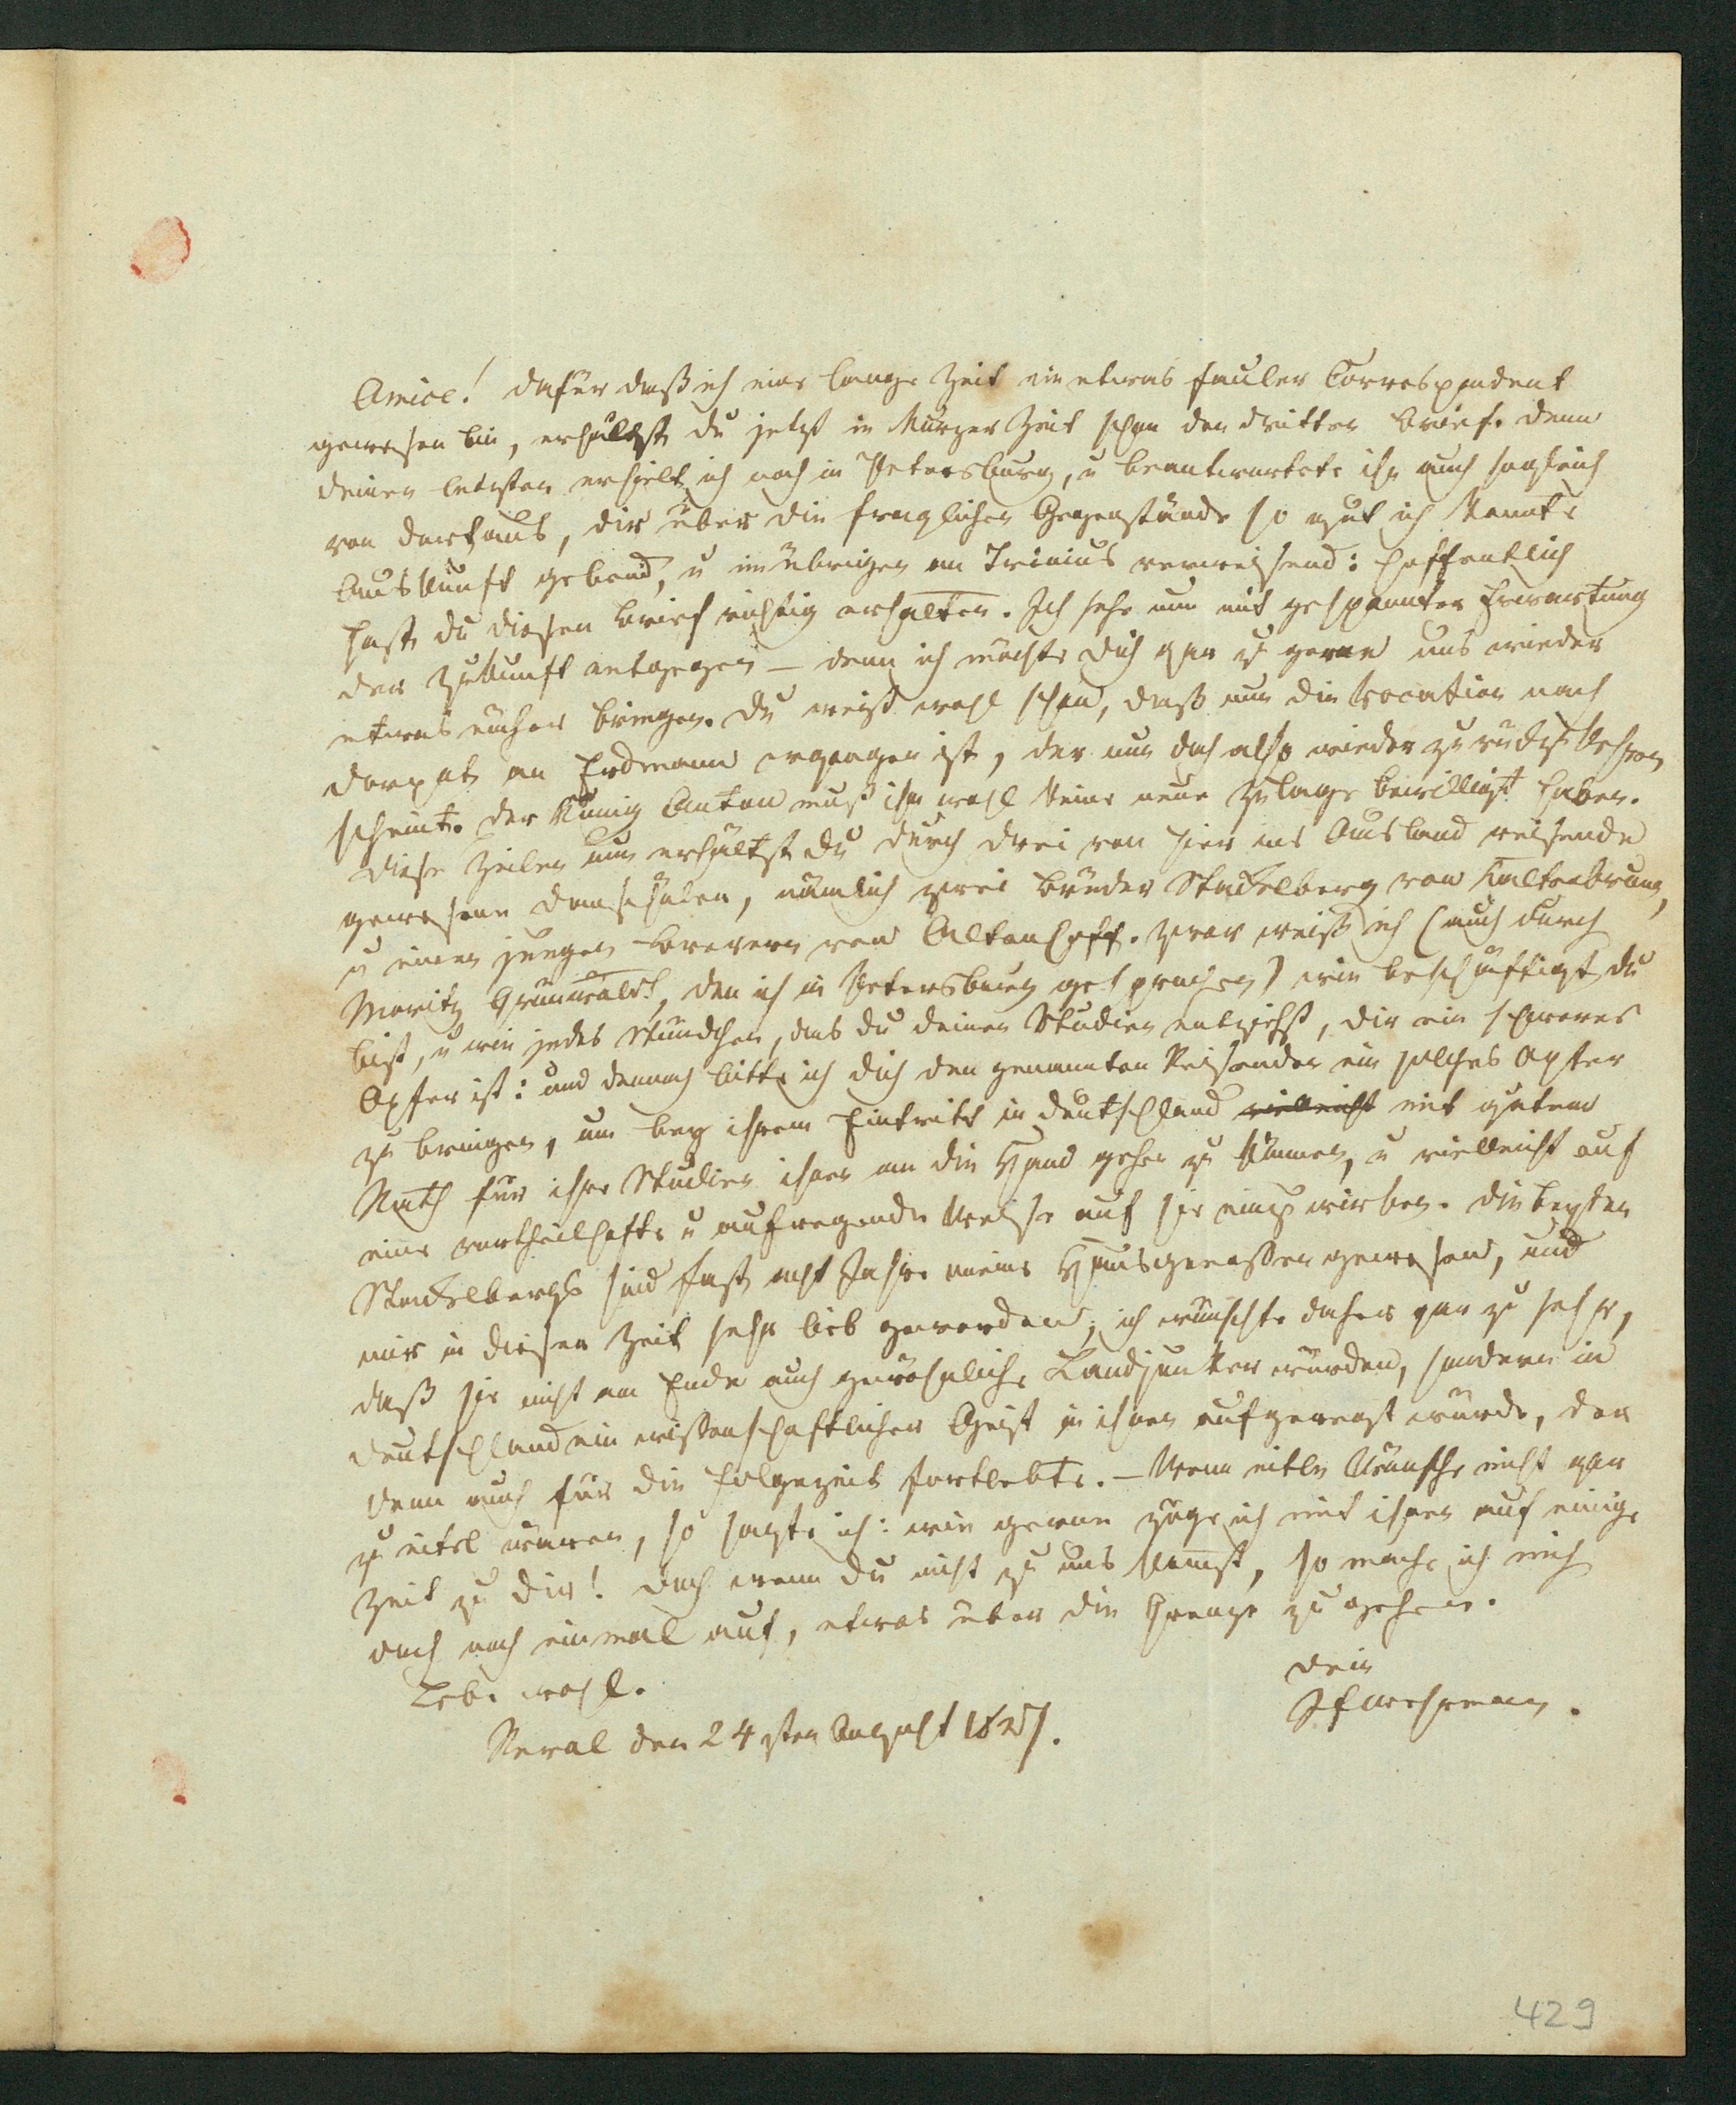 Amice! Dafür daß ich eine lange Zeit ein etwas fauler Correspondent
gewesen bin, erhältst du jetzt in kurzer Zeit schon den dritten Brief. Denn
deinen letzten erhielt ich noch in Petersburg, u beantwortete ihn auch sogleich
von dort aus, dir über die fraglichen Gegenstände so gut ich konnte
Auskunft gebend, u im übrigen an Trinius verweisend: hoffentlich
hast du diesen Brief richtig erhalten. Ich sehe nun mit gespannter Erwartung
der Zukunft entgegen – denn ich möchte dich gar zu gerne uns wieder
etwas näher bringen. Du weißt wohl schon, daß nun die Vocation nach
Dorpat an Erdmann ergangen ist, der nun doch also wieder zurückzukehren
scheint. Der König Anton muß ihm wohl keine neue Zulage bewilligt haben.
Diese Zeilen nun erhältst du durch drei von hier ins Ausland reisende
gewesene Domschüler, nämlich zwei Brüder Stackelberg von Kaltenbrunn,
u einen jungen Brevern von Altenhoff. Zwar weiß ich (auch durch
Moritz Grünwaldt, den ich in Petersburg gesprochen) wie beschäftigt du
bist, u wie jedes Stündchen, das du deinen Studien entziehst, dir ein schweres
Opfer ist: und dennoch bitte ich dich den genannten Reisenden ein solches Opfer
zu bringen, um bey ihrem Eintritt in Deutschland vielleicht mit gutem
Rath für ihre Studien ihnen an die Hand gehen zu können, u vielleicht auf
eine vortheilhafte u aufregende Weise auf sie einzuwirken. Die beyden
Stackelbergs sind fast acht Jahre meine Hausgenossen gewesen, und
mir in dieser Zeit sehr lieb geworden; ich wünschte daher gar zu sehr,
daß sie nicht am Ende auch gewöhnliche Landjunker würden, sondern in
Deutschland ein wissenschaftlicher Geist in ihnen aufgeregt würde, der
dann auch für die Folgezeit fortlebte. – Wenn eitle Wünsche nicht gar
zu eitel wären, so sagte ich: wie gerne zöge ich mit ihnen auf einige
Zeit zu dir! Doch wenn du nicht zu uns kommst, so mache ich mich
doch noch einmal auf, etwas über die Grenze zu gehen.
Leb. wohl.
Dein
Reval den 24sten August 1827.